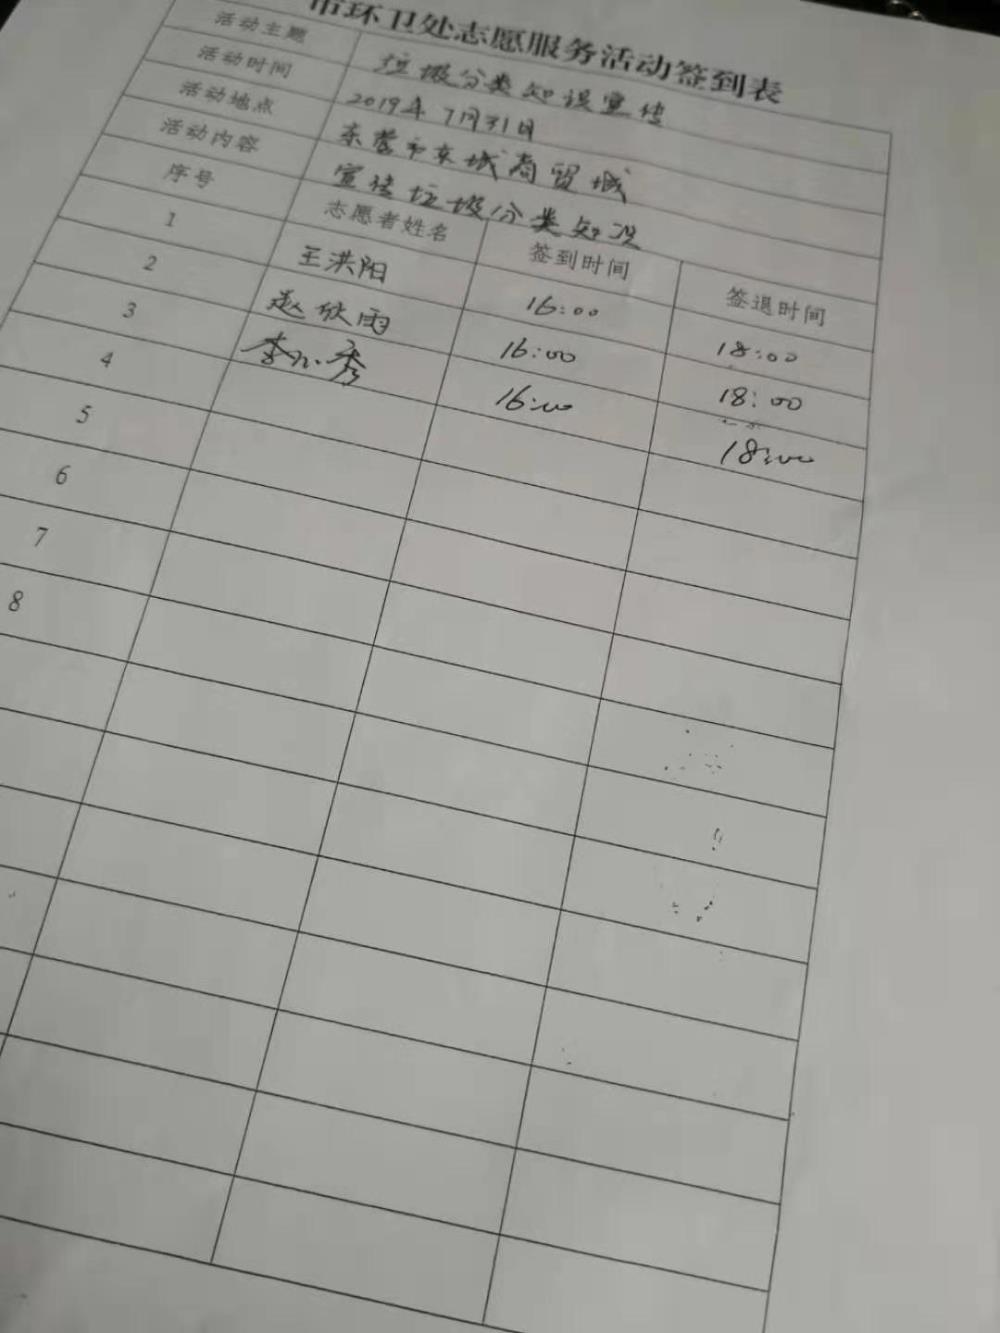 市环卫处志愿服务活动签到表
活动主题 垃圾分类知识宣传
活动时间 2019年7月31日
活动地点 东营市东城商贸城
活动内容 宣传垃圾分类知识
序号 志愿者姓名 签到时间 签退时间
1 王洪阳 16:00 18:00
2 赵欣雨 16:00 18:00
3 李 秀 16:00 18:00
4
5
6
7
8